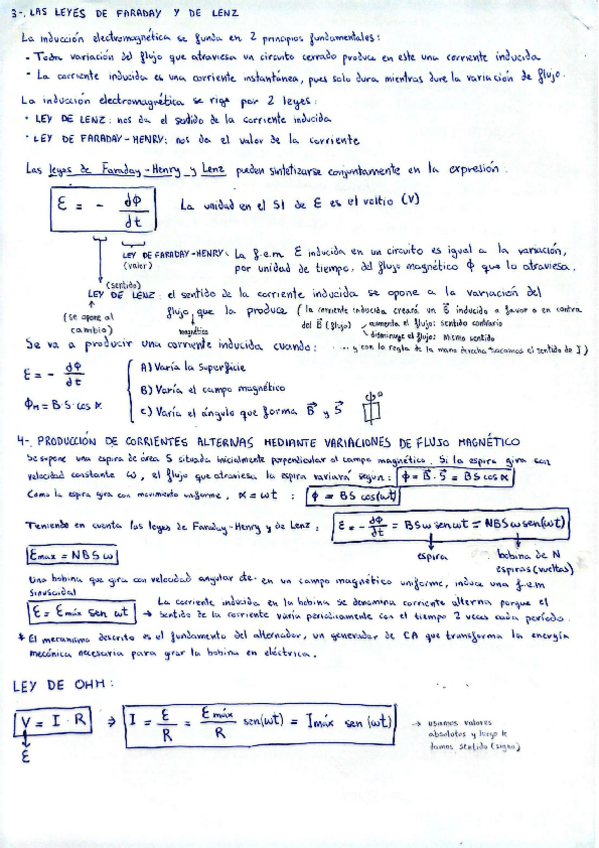 3-. LAS LEYES DE FARADAY Y DE LENZ
La inducción electromagnética se funda en 2 principios fundamentales:
· Toda variación del flujo que atraviesa un circuito cerrado produce en este una corriente inducida
· La corriente inducida es una corriente instantánea, pues solo dura mientras dure la variación de flujo.
La inducción electromagnética se rige por 2 leyes:
· LEY DE LENZ: nos da el sentido de la corriente inducida
· LEY DE FARADAY-HENRY: nos da el valor de la corriente
Las leyes de Faraday-Henry y Lenz pueden sintetizarse conjuntamente en la expresión:
Ɛ = - dϕ/dt La unidad en el SI de Ɛ es el voltio (V)
LEY DE FARADAY-HENRY: La f.e.m Ɛ inducida en un circuito es igual a la variación,
(valor) por unidad de tiempo, del flujo magnético ϕ que lo atraviesa.
(sentido)
LEY DE LENZ: el sentido de la corriente inducida se opone a la variación del
(se opone al cambio) flujo que la produce (la corriente inducida creará un B⃗ inducido a favor o en contra
magnético del B⃗ (flujo) aumenta el flujo: sentido contrario
disminuye el flujo: mismo sentido
Se va a producir una corriente inducida cuando: ..... y con la regla de la mano derecha sacamos el sentido de I)
Ɛ = - dϕ/dt A) Varía la superficie
ϕM = B·S·cos α B) Varía el campo magnético
C) Varía el ángulo que forma B⃗ y S⃗
4-. PRODUCCIÓN DE CORRIENTES ALTERNAS MEDIANTE VARIACIONES DE FLUJO MAGNÉTICO
Se supone una espira de área S situada inicialmente perpendicular al campo magnético. Si la espira gira con
velocidad constante ω, el flujo que atraviesa la espira variará según: ϕ = B⃗·S⃗ = BS cos α
Como la espira gira con movimiento uniforme, α = ωt : ϕ = BS cos(ωt)
Teniendo en cuenta las leyes de Faraday-Henry y de Lenz: Ɛ = - dϕ/dt = BSω sen ωt = NBSω sen(ωt)
Ɛmax = NBSω espira bobina de N
espiras (vueltas)
Una bobina que gira con velocidad angular cte. en un campo magnético uniforme, induce una f.e.m
sinusoidal
Ɛ = Ɛmáx sen ωt → La corriente inducida en la bobina se denomina corriente alterna porque el
sentido de la corriente varía periodicamente con el tiempo 2 veces cada período.
* El mecanismo descrito es el fundamento del alternador, un generador de CA que transforma la energía
mecánica necesaria para girar la bobina en eléctrica.
LEY DE OHM:
V = I · R ⇒ I = Ɛ/R = Ɛmáx/R sen(ωt) = Imáx sen (ωt) → usamos valores
absolutos y luego le
damos sentido (signo)
Ɛ